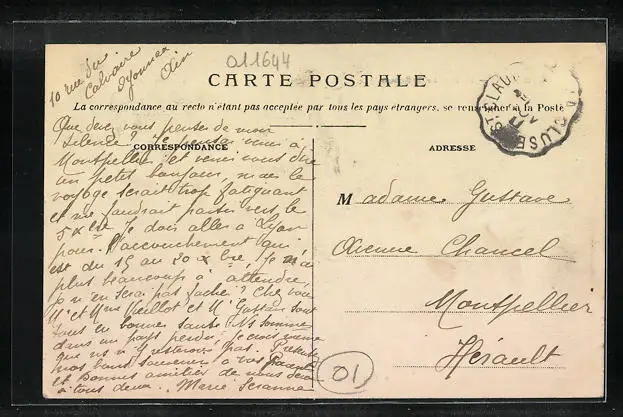 10 rue du
Calvaire
Oyonnax
Ain
011644
CARTE POSTALE
La correspondance au recto n'étant pas acceptée par tous les pays étrangers, se renseigner à la Poste
CORRESPONDANCE
Que devez vous penser de mon
silence? Je pensai venir à
Montpellier et venir vous dire
un petit bonjour, mais le
voyage serait trop fatiguant
et me faudrait partir vers le
5 Xbre Je dois aller à Lyon
pour l'accouchement qui
est du 15 au 20 Xbre, je n'ai
plus beaucoup à attendre,
je n'en serai pas fachée! Chez vous
Mr et Mme et Mr Gustave sont
tous en bonne santé. Ns sommes
dans un pays perdu, je crois même
que ns n'y resterons pas. Présentez
nos bons souvenirs à vos
et bonnes amitiés de nous deux
à tous deux. Marie
ADRESSE
Madame Gustave
Avenue Chancel
Montpellier
Hérault
01